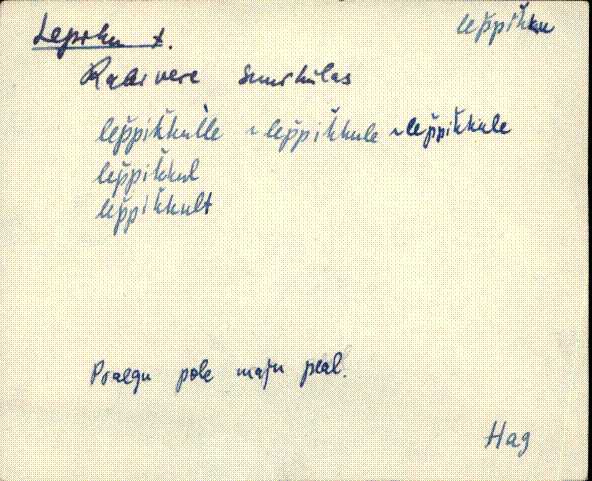 Lepiku t.
lep̆pik̆ku
Rabivere Suurkülas
lep̆pik̆kulle ~ lep̆pik̆kule ~ lep̆pik̆kule
lep̆pik̆kul
lep̆pik̆kult
Praegu pole maju peal.
Hag